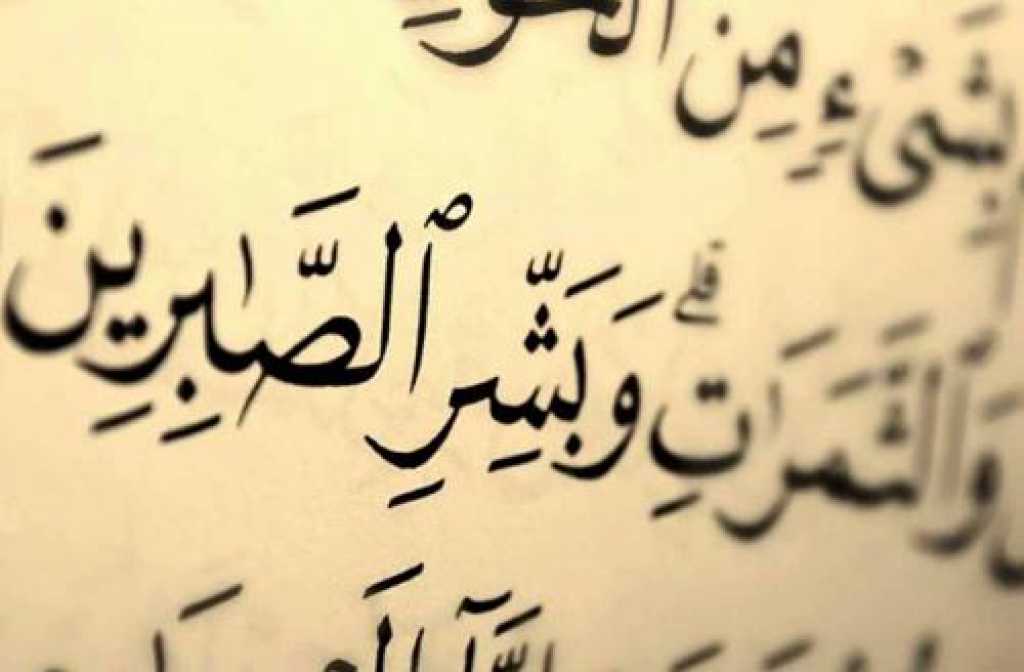 بِشَىْءٍ مِّنَ ٱلْخَوْفِ
وَٱلثَّمَرَٰتِ ۗ وَبَشِّرِ ٱلصَّٰبِرِينَ